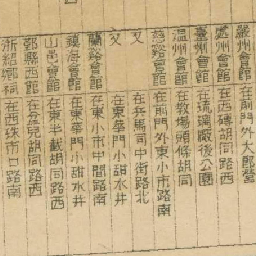 嚴州會館 在前門外大郎營
處州會館 在西磚胡同路西
臺州會館 在琉璃廠後公園
溫州會館 在教場頭條胡同
慈谿會館 在前門外東小市路南
又 在兵馬司中街路北
又 在東華門小甜水井
蘭谿會館 在東小市中間路南
鎮海會館 在東華門小甜水井
山邑會館 在東半截胡同路西
鄞縣西館 在盆兒胡同路西
浙紹鄉祠 在西珠市口路南